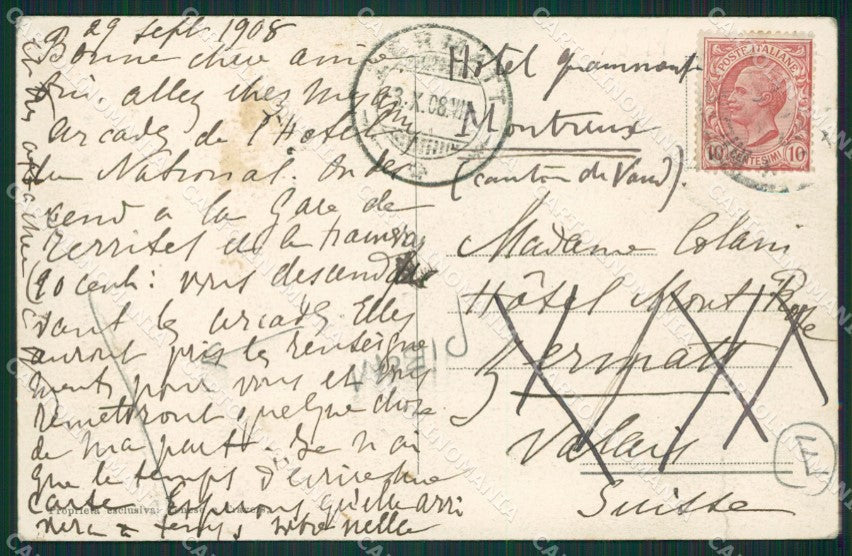 29 sept. 1908
Bonne chère amie
allez chez
arcades de l'Hotel
du National. On des
cend à la Gare de
Territet de la tramway
(20 cent: vous descend
vant les arcades. Elles
auront pris les renseigne
ments pour vous et vous
remettront quelque chose
de ma part. Je n'ai
que le temps d'écrire une
carte. Espérons qu'elle arri
vera à temps, votre
Proprietà esclusiva
ERMATT
3.X.08.VII
Hôtel
Montreux
(canton de Vaud).
POSTE ITALIANE
10 CENTESIMI 10
Madame Colani
Hôtel Mont Rose
Zermatt
Valais
Suisse
CARTOLINOMANIA